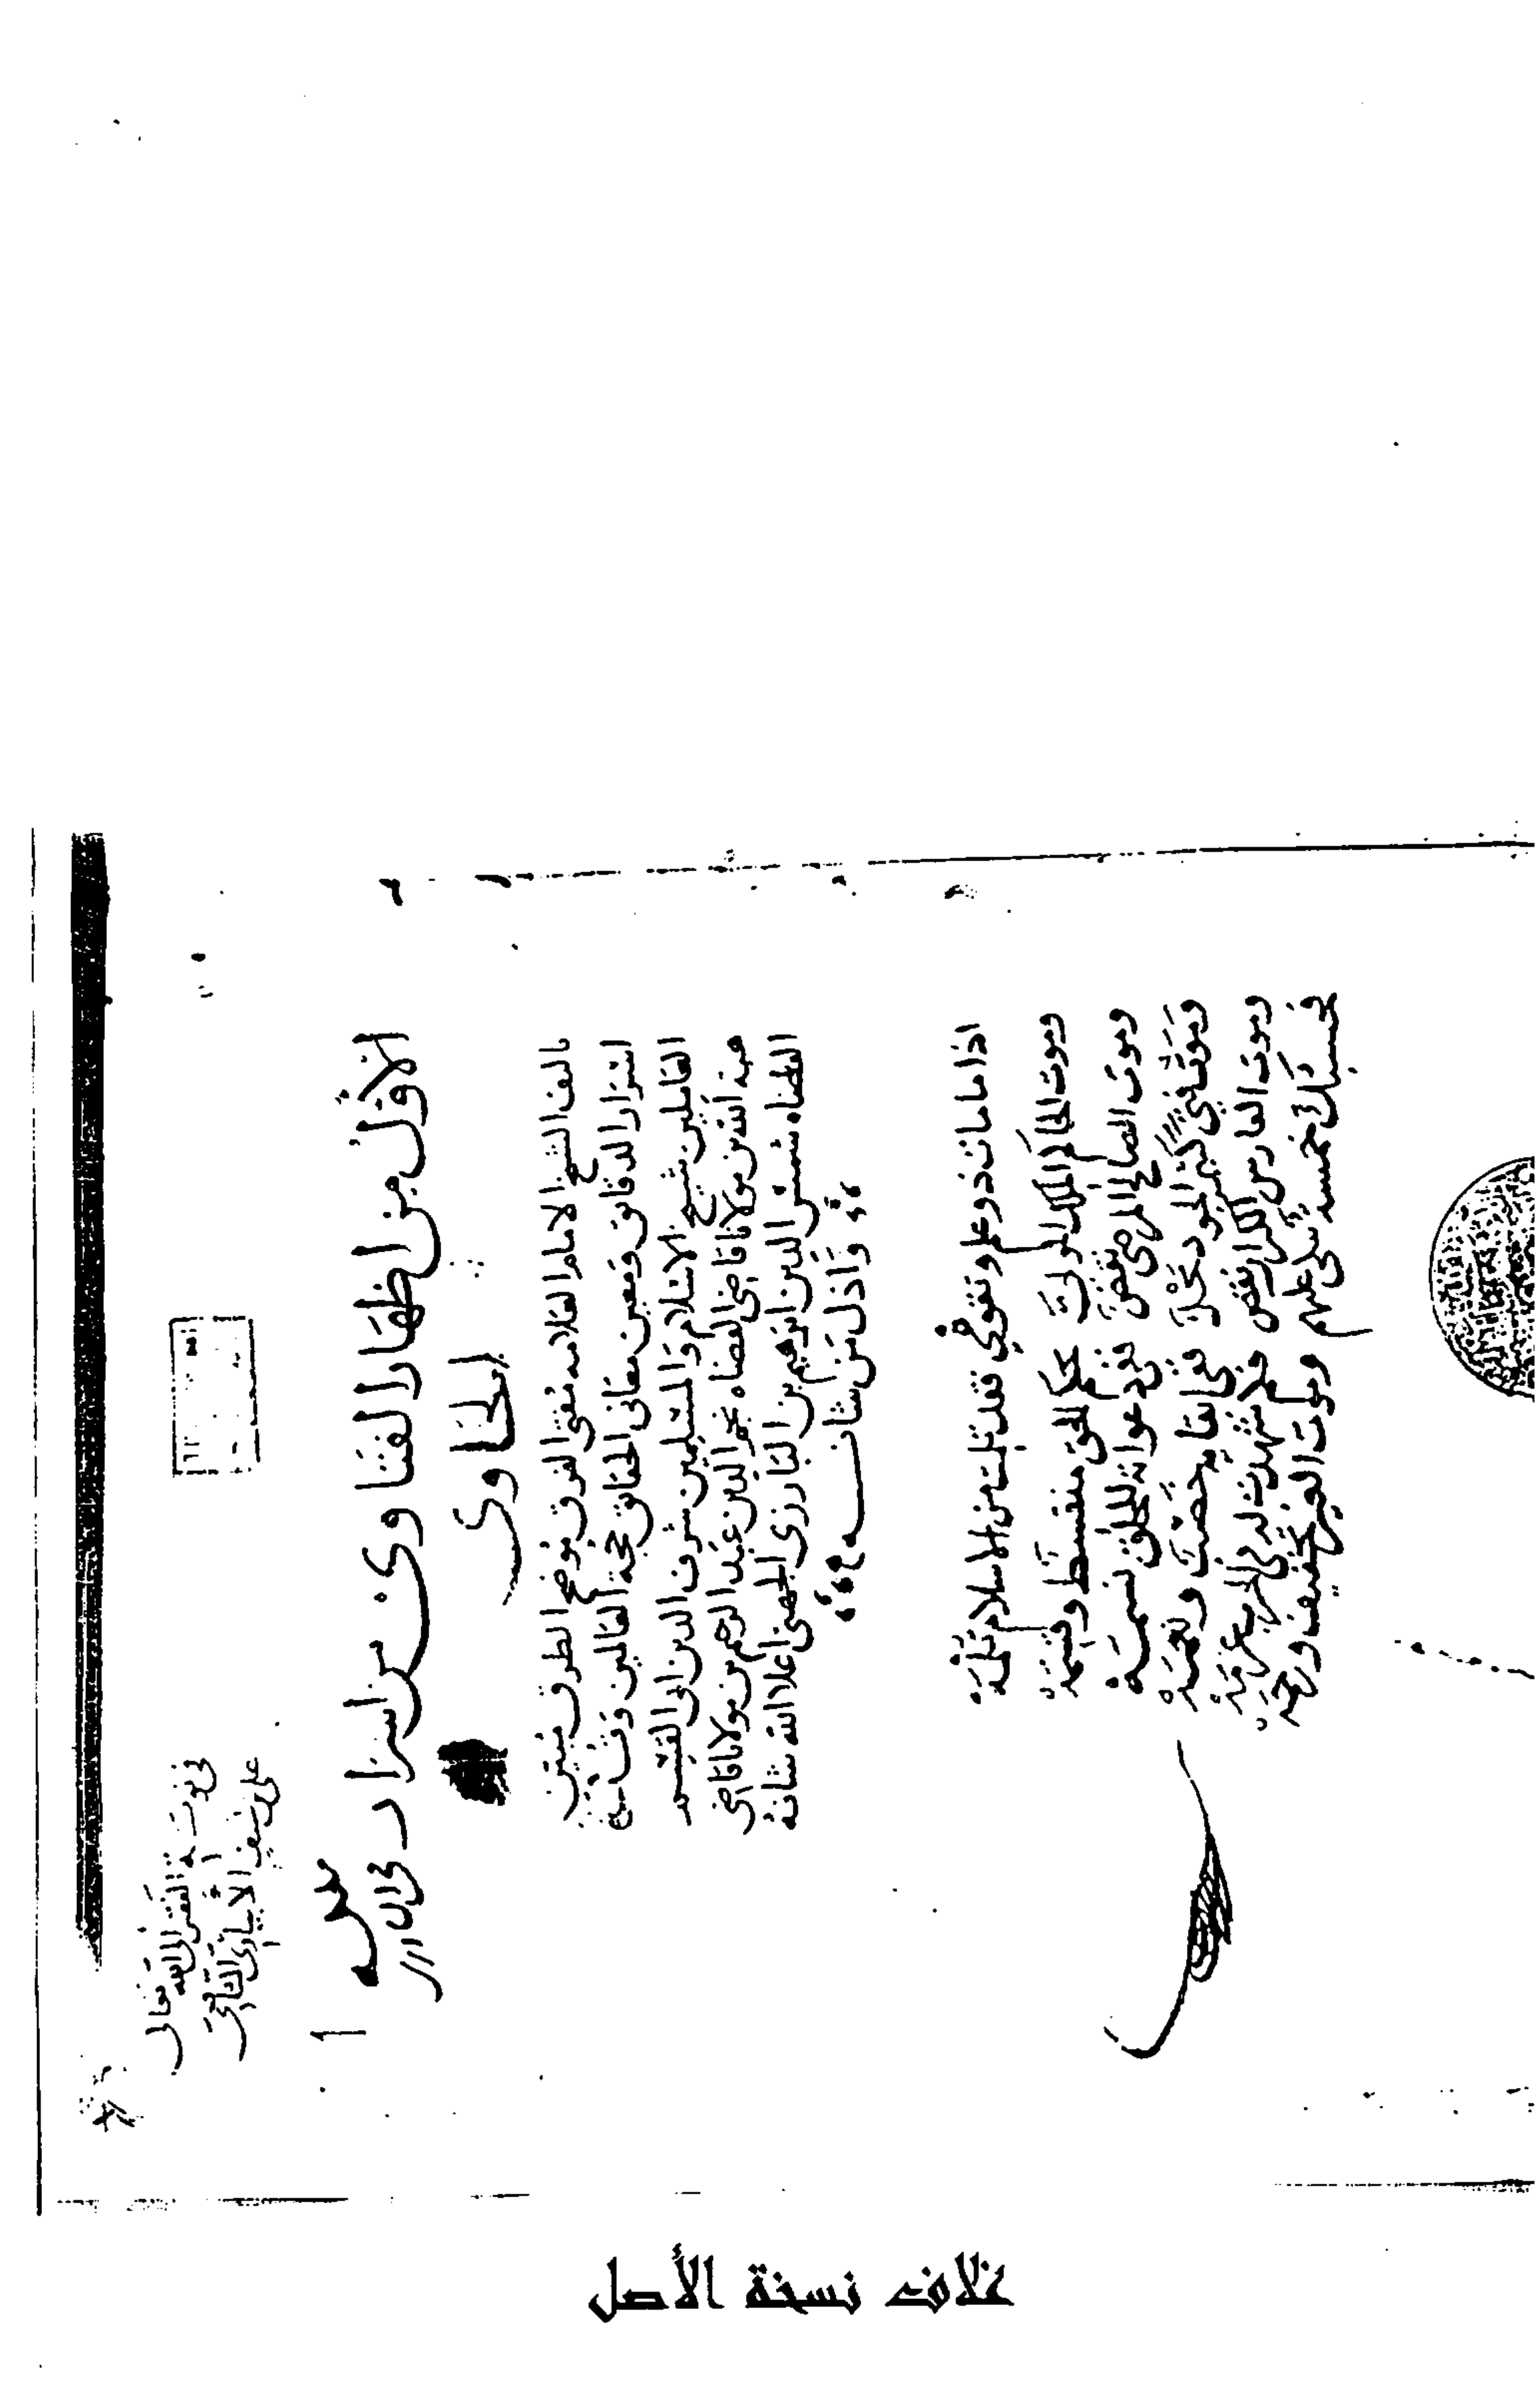 في نوبة الفقير الى الله تعالى
على بن الأبياري الشافعي
الاول من اظهار الفتاوى من اسرار
الحاوى
تاليف الشيخ الامام العلامه مفتى الفرق موضح الطرق مبين
اسرار الدقائق ومعين معانى الحقائق حجة العالمين
العاملين شيخ الاسلام والمسلمين شرف الدين ابى القسم
هبة الله بن مولانا قاضى القضاه نجم الدين عبد الرحيم بن مولانا قاضى
القضاه شمس الدين ابرهيم بن البارزى الجهنى اعلا الله شانه
واذل من شانـه
اذا ما مات ذو علم وتقوى فقد ثلمت من الاسلام ثلمه
وموت الحاكم الملك المولى بحكم الحق منقصة وقصمه
وموت الصالح المرضى نقص ففى دعواته للخلق نسمه
وموت فتى كثير الجود محل فى ابقايه خصب ونعمه
وموت الفارس الكرار نقص فكم شهدت له فى الحرب عزمه
فحسبك خمسة تبكى عليهم وموت الغير تخفيف ورحمه
غلاف نسخة الأصل